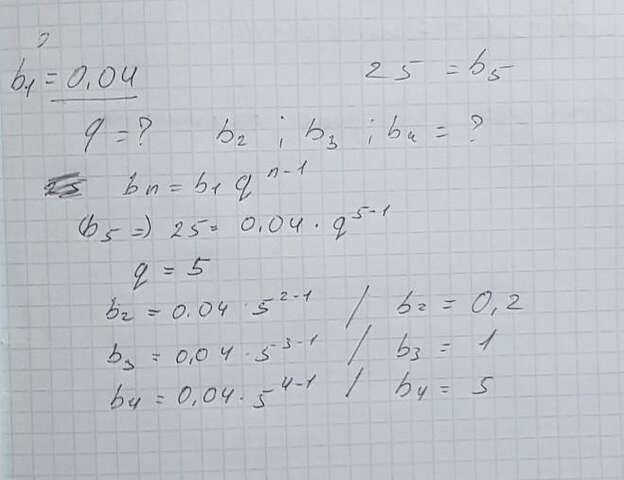 b₁ = 0,04 25 = b₅
q = ? b₂ ; b₃ ; b₄ = ?
bn = b₁ qⁿ⁻¹
(b₅ =) 25 = 0,04 · q⁵⁻¹
q = 5
b₂ = 0.04 · 5²⁻¹ / b₂ = 0,2
b₃ = 0,04 · 5³⁻¹ / b₃ = 1
b₄ = 0,04 · 5⁴⁻¹ / b₄ = 5